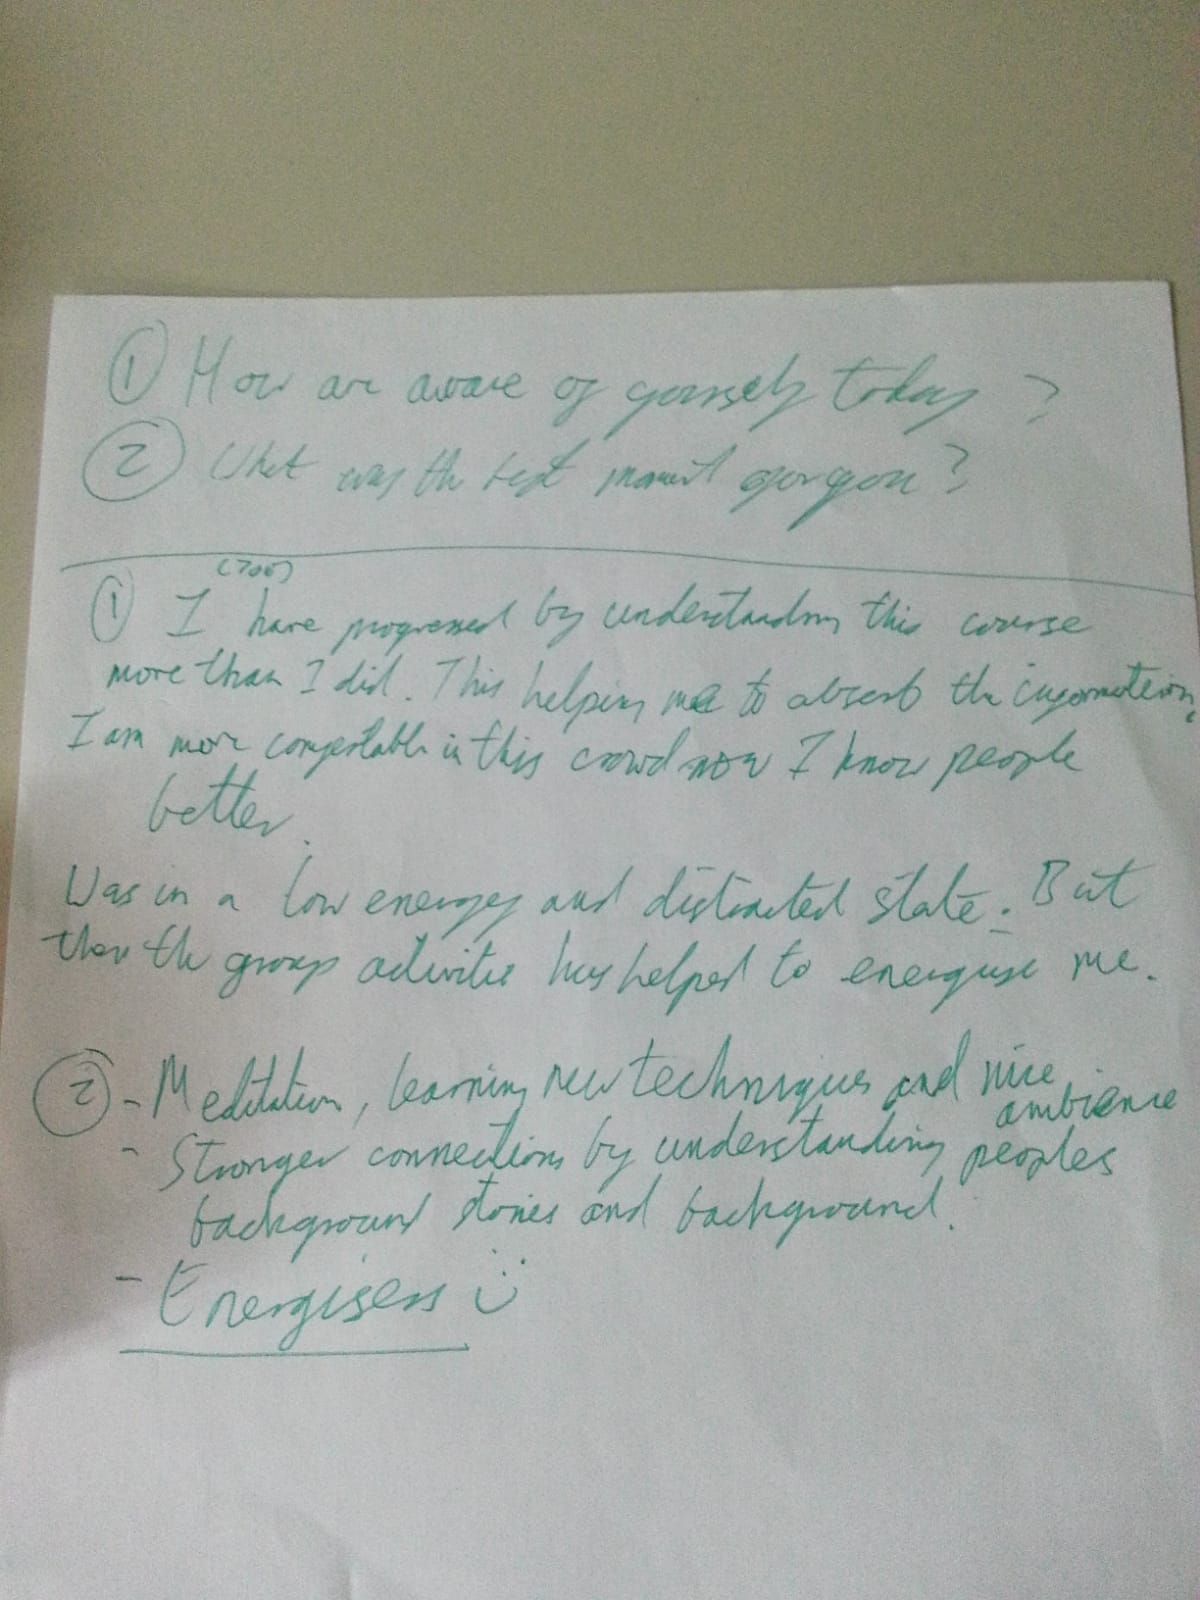 ① How are aware of yourself today?
② What was the best moment for you?
① I have progressed by understanding this course
more than I did. This helping me to absorb the information.
I am more comfortable in this crowd now I know people
better.
Was in a low energy and distracted state. But
then the group activities has helped to energise me.
② - Meditation, learning new techniques and nice
ambience
- Stronger connections by understanding peoples
background stories and background.
- Energisers